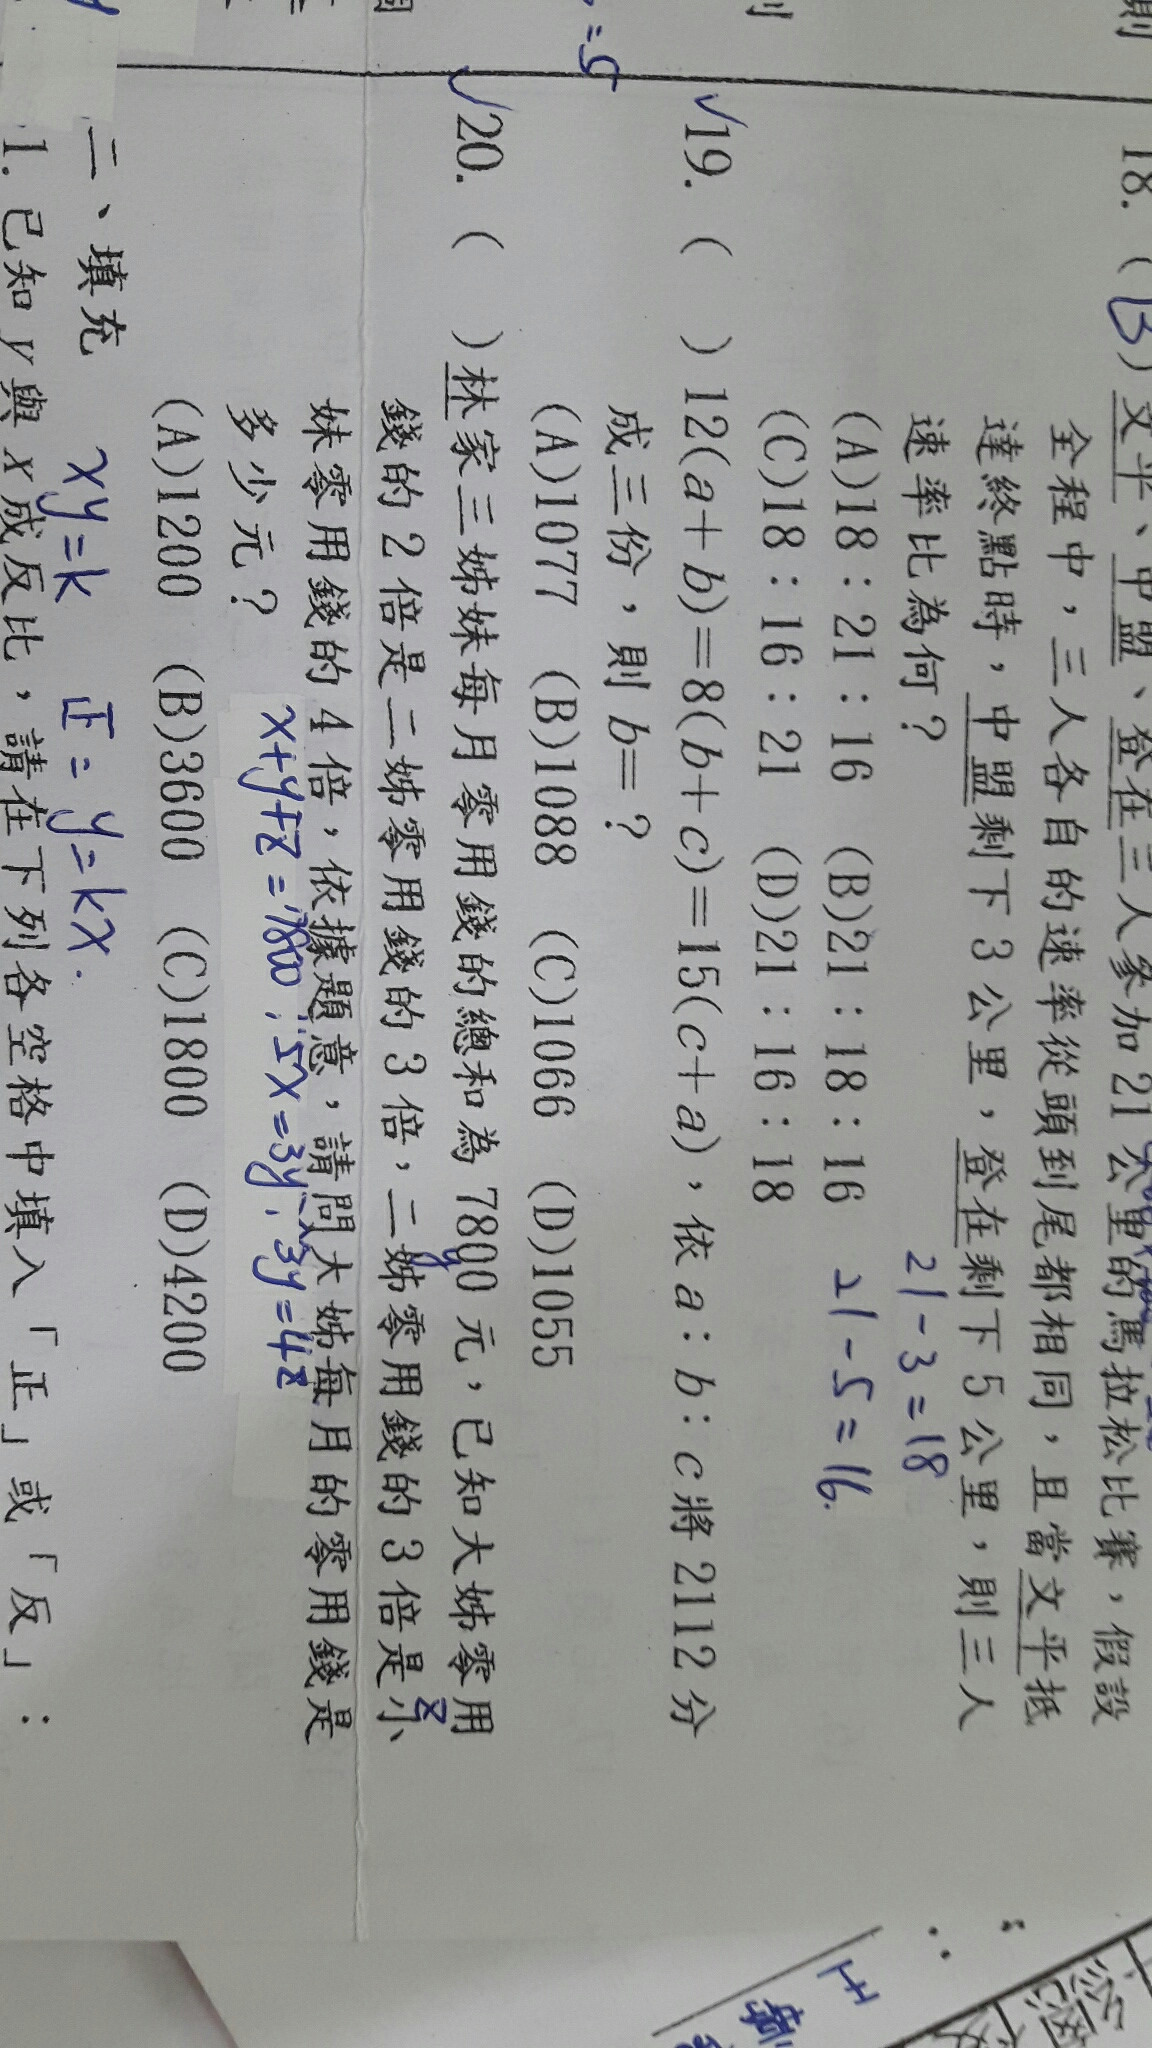 18. (B) 文平、中盟、登在三人參加 21 公里的馬拉松比賽，假設
全程中，三人各自的速率從頭到尾都相同，且當文平抵
達終點時，中盟剩下 3 公里，登在剩下 5 公里，則三人
速率比為何？
21-3=18
(A)18：21：16 (B)21：18：16
(C)18：16：21 (D)21：16：18
21-5=16.
√19. ( ) 12(a+b)=8(b+c)=15(c+a)，依 a：b：c 將 2112 分
成三份，則 b=？
(A)1077 (B)1088 (C)1066 (D)1055
√20. ( ) 林家三姊妹每月零用錢的總和為 7800 元，已知大姊零用
錢的 2 倍是二姊零用錢的 3 倍，二姊零用錢的 3 倍是小
y z
妹零用錢的 4 倍，依據題意，請問大姊每月的零用錢是
多少元？
x+y+z=7800
3y=4z
(A)1200 (B)3600 (C)1800 (D)4200
二、填充
xy=k 正= y=kx.
1. 已知 y 與 x 成反比，請在下列各空格中填入「正」或「反」：
=5